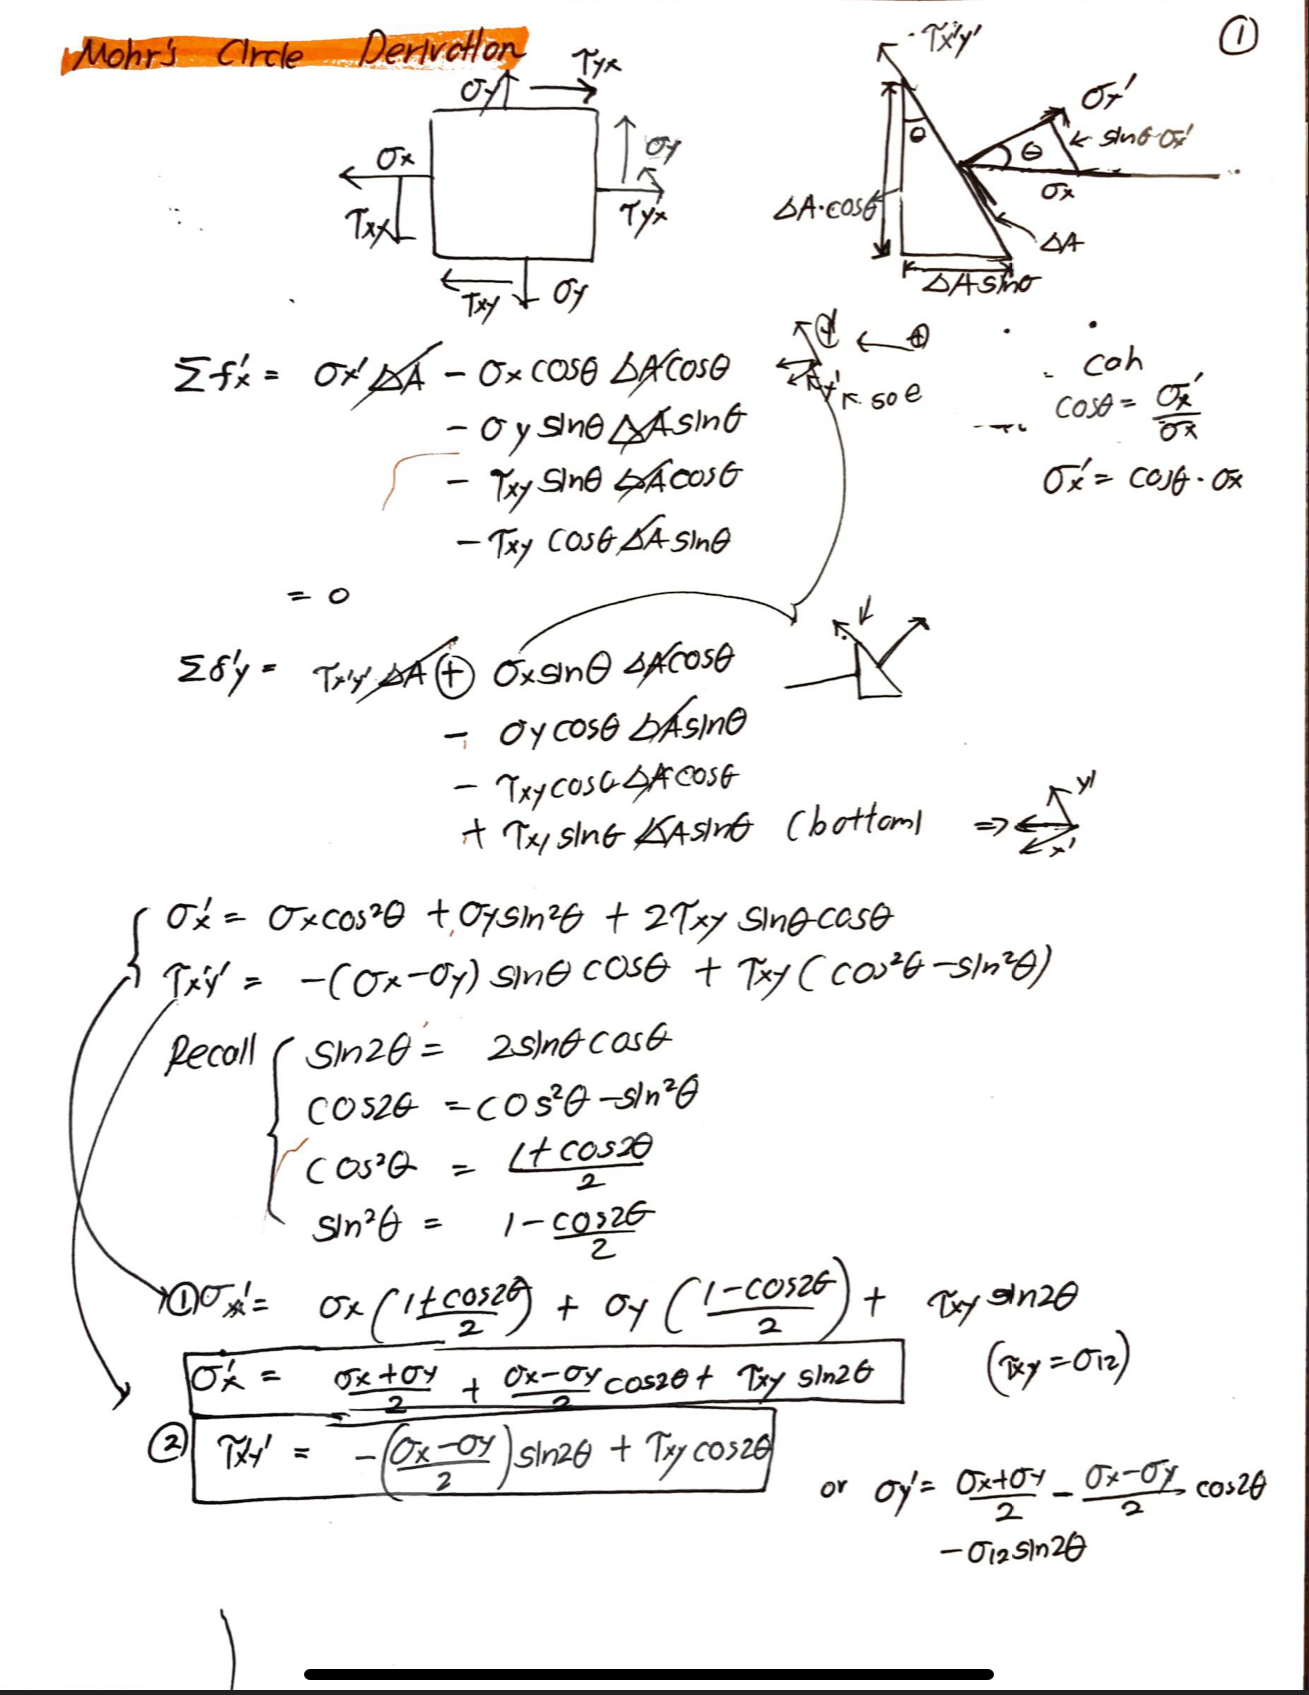 Mohr's Circle Derivation
①
τyx
σy
σx
τxy
σy
τyx
τxy
σy
τx'y'
σx'
θ
sinθ·σx'
θ
σx
ΔA·cosθ
ΔA
ΔA sinθ
Σfx' = σx' ΔA - σx cosθ ΔA cosθ
- σy sinθ ΔA sinθ
- τxy sinθ ΔA cosθ
- τxy cosθ ΔA sinθ
= 0
y'
⊕
x'
coh
cosθ = σx'/σx
σx' = cosθ · σx
Σfy' = τx'y' ΔA ⊕ σx sinθ ΔA cosθ
- σy cosθ ΔA sinθ
- τxy cosθ ΔA cosθ
+ τxy sinθ ΔA sinθ (bottom) ⇒
y'
x'
σx' = σx cos²θ + σy sin²θ + 2τxy sinθ cosθ
τx'y' = -(σx-σy) sinθ cosθ + τxy (cos²θ - sin²θ)
Recall
sin2θ = 2sinθ cosθ
cos2θ = cos²θ - sin²θ
cos²θ = 1+cos2θ/2
sin²θ = 1-cos2θ/2
① σx' = σx (1+cos2θ/2) + σy (1-cos2θ/2) + τxy sin2θ
σx' = σx+σy/2 + σx-σy/2 cos2θ + τxy sin2θ
(τxy = σ12)
② τx'y' = -(σx-σy/2) sin2θ + τxy cos2θ
or σy' = σx+σy/2 - σx-σy/2 cos2θ
- σ12 sin2θ